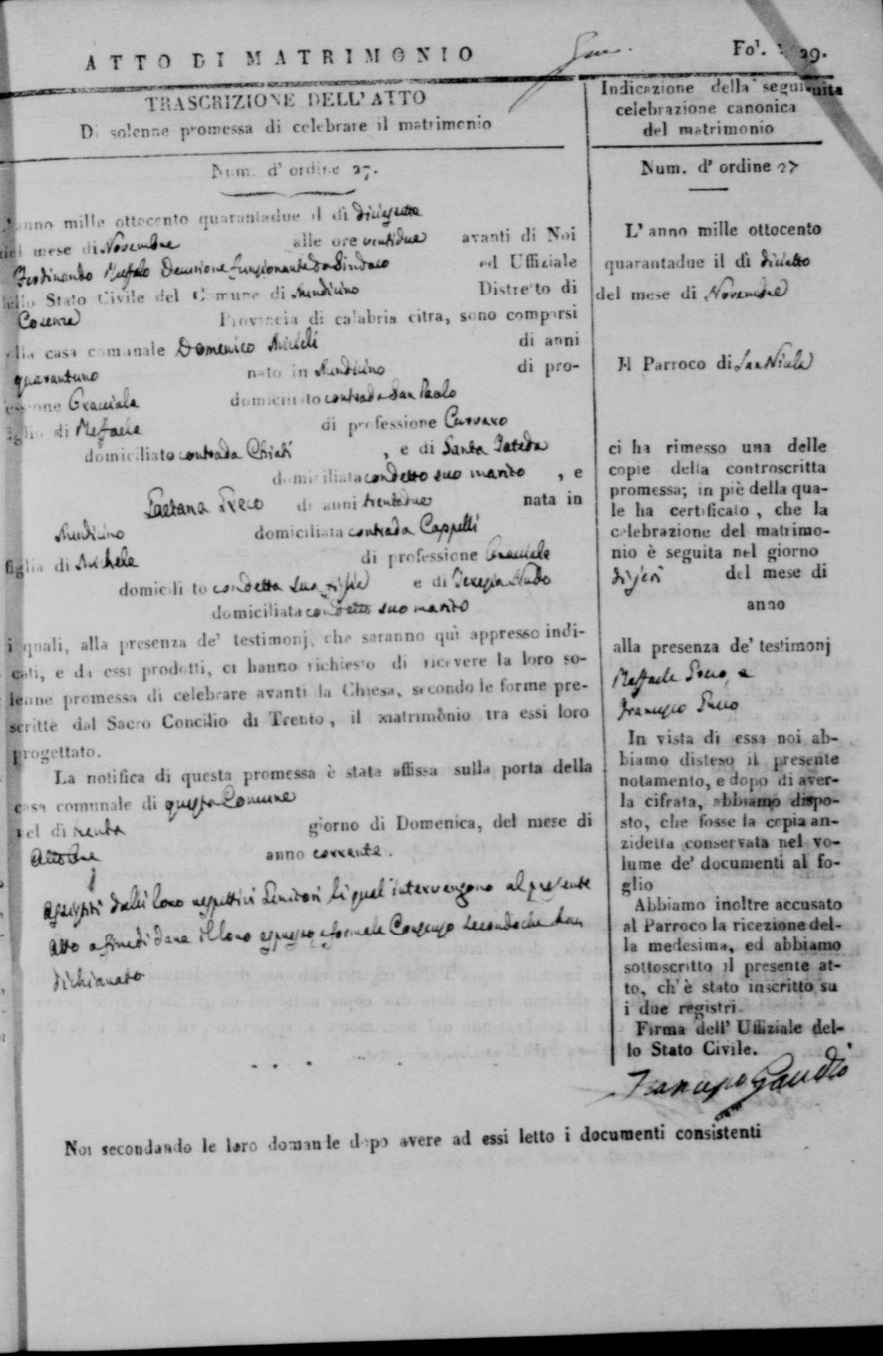 ATTO DI MATRIMONIO
Fol. 29.
TRASCRIZIONE DELL'ATTO
Di solenne promessa di celebrare il matrimonio
Num. d'ordine 27.
L'anno mille ottocento quarantadue il dì diciasette
del mese di Novembre alle ore ventidue avanti di Noi
Ferdinando Decurione funzionante da Sindaco ed Uffiziale
dello Stato Civile del Comune di Mendicino Distretto di
Cosenza Provincia di calabria citra, sono comparsi
alla casa comunale Domenico di anni
quarantuno nato in Mendicino di pro-
fessione Bracciale domiciliato contrada San Paolo
figlio di Raffaele di professione
domiciliato contrada Chiati, e di Santa
domiciliata con detto suo marito, e
Gaetana Greco di anni trentadue nata in
Mendicino domiciliata contrada Cappelli
figlia di Michele di professione Bracciale
domicili to con detta sua figlia e di Teresa Nudo
domiciliata con detto suo marito
i quali, alla presenza de' testimonj, che saranno quì appresso indi-
cati, e da essi prodotti, ci hanno richiesto di ricevere la loro so-
lenne promessa di celebrare avanti la Chiesa, secondo le forme pre-
scritte dal Sacro Concilio di Trento, il matrimonio tra essi loro
progettato.
La notifica di questa promessa è stata affissa sulla porta della
casa comunale di questo Comune
nel dì trenta giorno di Domenica, del mese di
Ottobre anno corrente.
Assistiti dalli loro rispettivi Genitori li quali intervengono al presente
atto a fine di dare il loro espresso e formale Consenso secondo che han
dichiarato
Noi secondando le loro domande dopo avere ad essi letto i documenti consistenti
Indicazione della seguita
celebrazione canonica
del matrimonio
Num. d'ordine 27
L'anno mille ottocento
quarantadue il dì diciotto
del mese di Novembre
Il Parroco di San Nicola
ci ha rimesso una delle
copie della controscritta
promessa; in piè della qua-
le ha certificato, che la
celebrazione del matrimo-
nio è seguita nel giorno
di jeri del mese di
anno
alla presenza de' testimonj
Raffaele Greco, e
Francesco Greco
In vista di essa noi ab-
biamo disteso il presente
notamento, e dopo di aver-
la cifrata, abbiamo dispo-
sto, che fosse la copia an-
zidetta conservata nel vo-
lume de' documenti al fo-
glio
Abbiamo inoltre accusato
al Parroco la ricezione del-
la medesima, ed abbiamo
sottoscritto il presente at-
to, ch'è stato inscritto su
i due registri.
Firma dell' Uffiziale del-
lo Stato Civile.
Francesco Gaudio